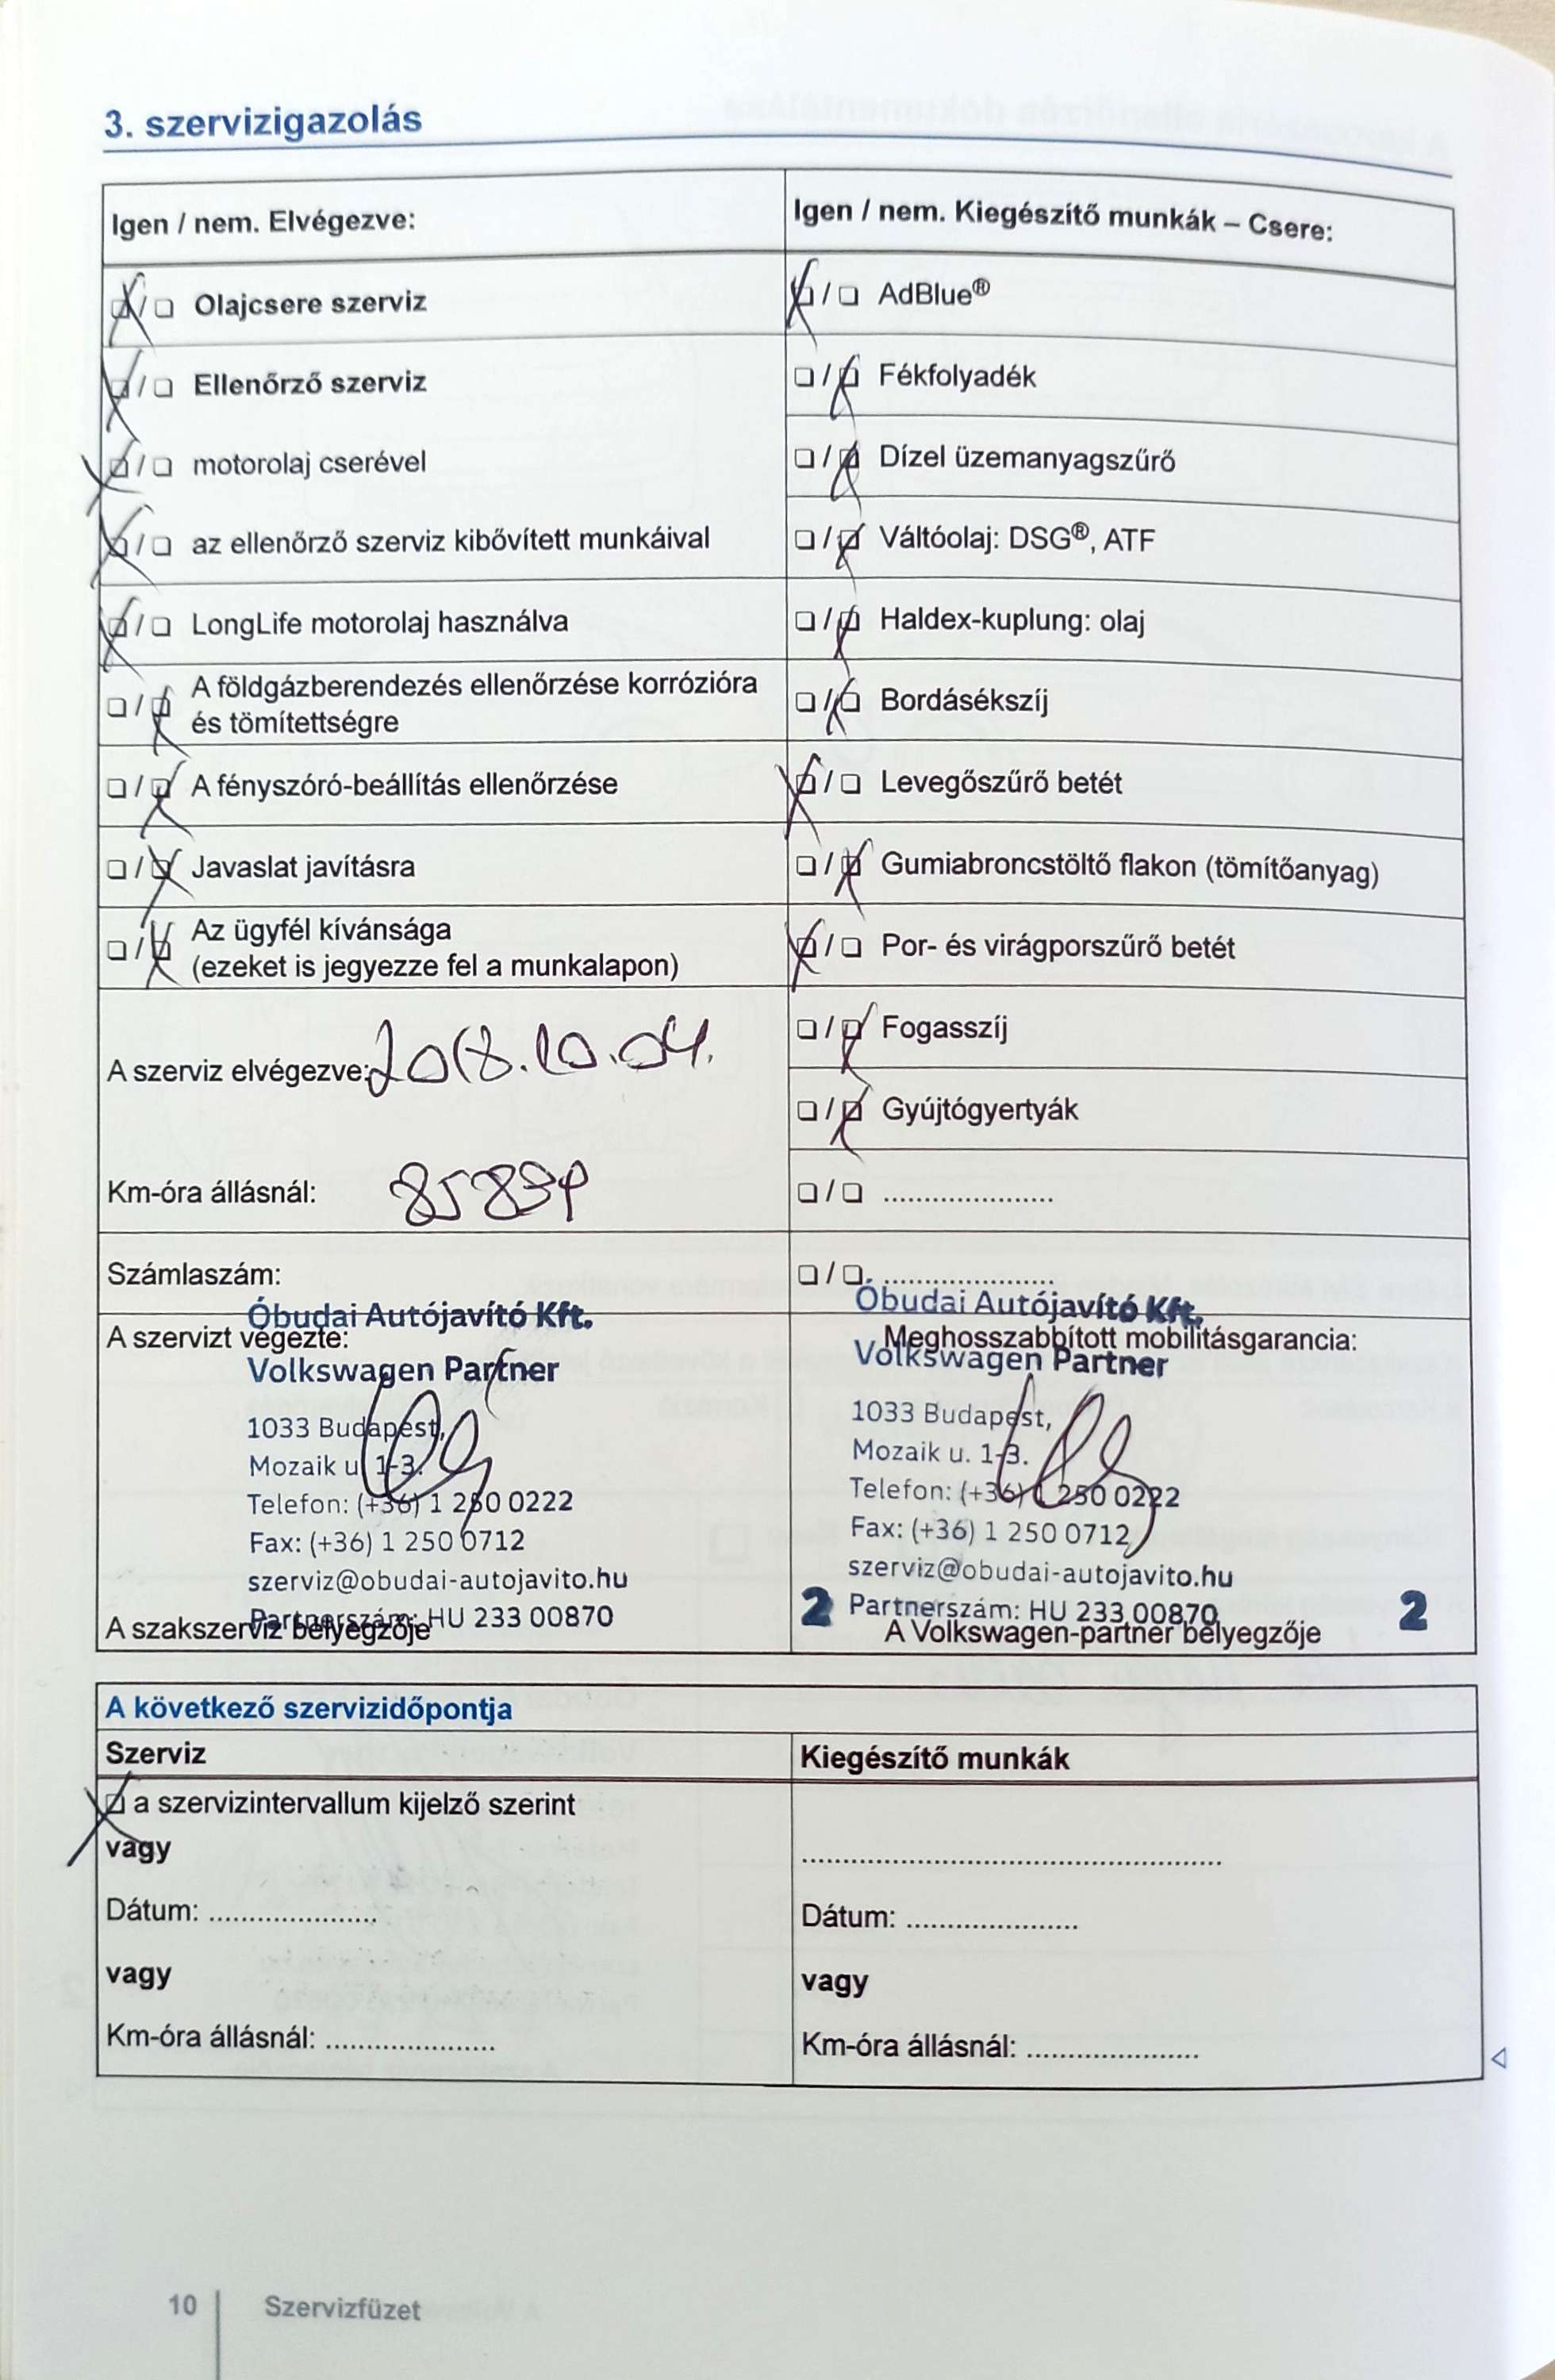 3. szervizigazolás
Igen / nem. Elvégezve:
☒ / ☐ Olajcsere szerviz
☒ / ☐ Ellenőrző szerviz
☒ / ☐ motorolaj cserével
☒ / ☐ az ellenőrző szerviz kibővített munkáival
☒ / ☐ LongLife motorolaj használva
☐ / ☒ A földgázberendezés ellenőrzése korrózióra
és tömítettségre
☐ / ☒ A fényszóró-beállítás ellenőrzése
☐ / ☒ Javaslat javításra
☐ / ☒ Az ügyfél kívánsága
(ezeket is jegyezze fel a munkalapon)
A szerviz elvégezve: 2018.10.04.
Km-óra állásnál:
Számlaszám:
Igen / nem. Kiegészítő munkák – Csere:
☒ / ☐ AdBlue®
☐ / ☒ Fékfolyadék
☐ / ☒ Dízel üzemanyagszűrő
☐ / ☒ Váltóolaj: DSG®, ATF
☐ / ☒ Haldex-kuplung: olaj
☐ / ☒ Bordásékszíj
☒ / ☐ Levegőszűrő betét
☐ / ☒ Gumiabroncstöltő flakon (tömítőanyag)
☒ / ☐ Por- és virágporszűrő betét
☐ / ☒ Fogasszíj
☐ / ☒ Gyújtógyertyák
☐ / ☐ .....................
☐ / ☐ .....................
Óbudai Autójavító Kft.
A szervizt végezte:
Volkswagen Partner
1033 Budapest,
Mozaik u. 1-3.
Telefon: (+36) 1 250 0222
Fax: (+36) 1 250 0712
szerviz@obudai-autojavito.hu
Partnerszám: HU 233 00870
A szakszerviz bélyegzője
2
Óbudai Autójavító Kft.
Meghosszabbított mobilitásgarancia:
Volkswagen Partner
1033 Budapest,
Mozaik u. 1-3.
Telefon: (+36) 1 250 0222
Fax: (+36) 1 250 0712
szerviz@obudai-autojavito.hu
Partnerszám: HU 233 00870
A Volkswagen-partner bélyegzője
2
A következő szervizidőpontja
Szerviz
☒ a szervizintervallum kijelző szerint
vagy
Dátum: .....................
vagy
Km-óra állásnál: .....................
Kiegészítő munkák
.....................................................
Dátum: .....................
vagy
Km-óra állásnál: .....................
10 Szervizfüzet